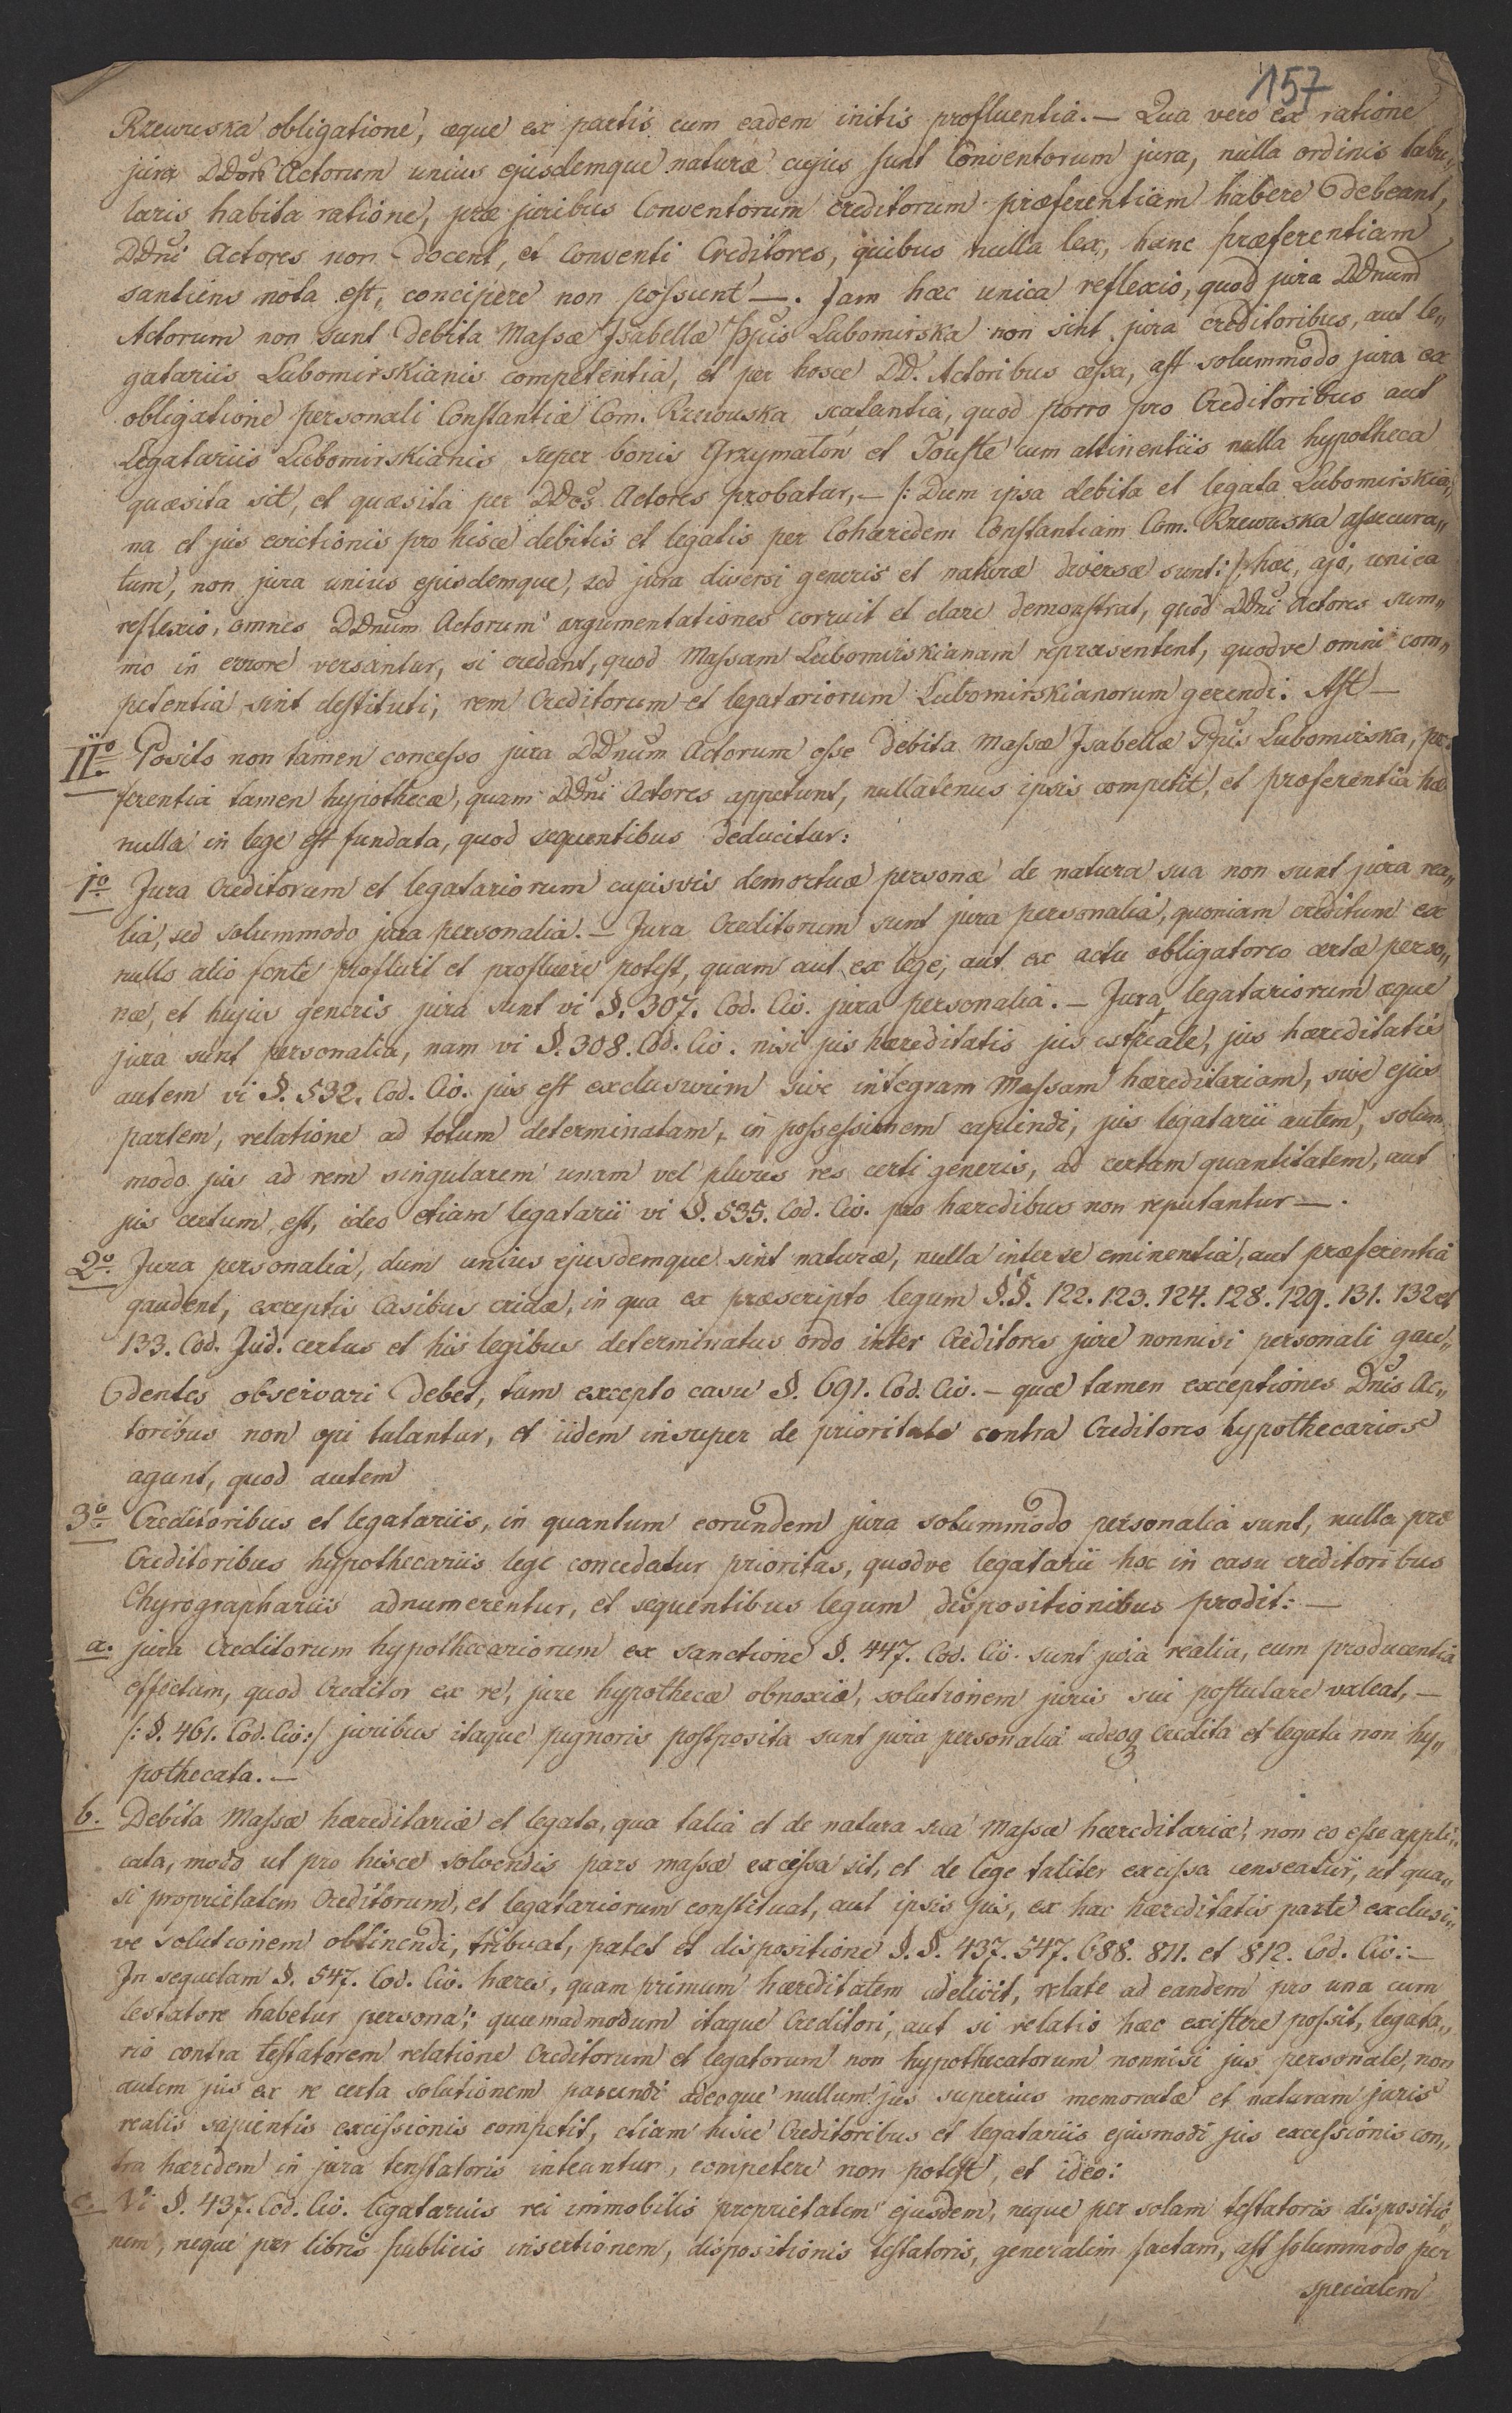 157
Rzewuska obligatione, æque ex partis cum eadem initis profluentia.— Qua vero ex ratione
jura DDnor Actorum unius ejusdemque naturæ cujus sunt Conventorum jura, nulla ordinis tabu„
laris habita ratione, præ juribus Conventorum creditorum præferentiam habere debeant,
DDni Actores non docent, et Conventi Creditores, quibus nulla lex, hanc præferentiam
santiens nota est, concipere non possunt —. Jam hæc unica reflexio, quod jura DDnum
Actorum non sunt debita Massæ Isabellæ Ppis Lubomirska non sint jura creditoribus, aut le„
gatariis Lubomirskianis competentia, et per hosce DD. Actoribus cessa, ast solummodo jura ex
obligatione personali Constantiæ Com. Rzewuska scatentia, quod porro pro Creditoribus aut
Legatariis Lubomirskianis super bonis Grzymałon et Touste cum attinentiis nulla hypotheca
quæsita sit, et quæsita per DDos Actores probatur,— /: Dum ipsa debita et legata Lubomirskia„
na et jus evictionis pro hisce debitis et legatis per Cohæredem Constantiam Com. Rzewuska assecura„
tum, non jura unius ejusdemque, sed jura diversi generis et naturæ diversæ sunt :/ hæc, ajo, unica
reflexio, omnes DDnum Actorum argumentationes corruit et clare demonstrat, quod DDni Actores sum„
mo in errore versantur, si credant, quod Massam Lubomirskianam repræsentent, quodve omni com„
petentia sint destituti, rem Creditorum et legatariorum Lubomirskianorum gerendi. Ast —
IIo. Posito non tamen concesso jura DDnum Actorum esse debita Massæ Isabellæ Ppis Lubomirska, præ„
ferentia tamen hypothecæ, quam DDni Actores appetunt, nullatenus ipsis competit, et præferentia hæc
nulla in lege est fundata, quod sequentibus deducitur:
1o. Jura Creditorum et legatariorum cujusvis demortuæ personæ de natura sua non sunt jura rea„
lia, sed solummodo jura personalia.— Jura Creditorum sunt jura personalia, quoniam creditum ex
nullo alio fonte profluit et profluere potest, quam aut ex lege, aut ex actu obligatoreo certæ perso„
næ, et hujus generis jura sunt vi §. 307. Cod. Civ. jura personalia.— Jura legatariorum æque
jura sunt personalia, nam vi §. 308. Cod. Civ. nisi jus hæreditatis jus est reale, jus hæreditatis
autem vi §. 532. Cod. Civ. jus est exclusivum sive integram Massam hæreditariam, sive ejus
partem, relatione ad totum determinatam, in possessionem capiendi, jus legatarii autem, solum„
modo jus ad rem singularem unam vel plures res certi generis, ad certam quantitatem, aut
jus certum est, ideo etiam legatarii vi §. 535. Cod. Civ. pro hæredibus non reputantur —.
2o. Jura personalia, dum unius ejusdemque sint naturæ, nulla inter se eminentia, aut præferentia
gaudent, exceptis Casibus cridæ, in qua ex præscripto legum §.§. 122. 123. 124. 128. 129. 131. 132 et
133. Cod. Jud. certus et his legibus determinatus ordo inter Creditores jure nonnisi personali gau„
dentes observari debet, tum excepto casu §. 691. Cod. Civ.— quæ tamen exceptiones Dnis Ac„
toribus non opi tulantur, et iidem insuper de prioritate contra Creditores hypothecarios
agunt, quod autem
3o. Creditoribus et legatariis, in quantum eorundem jura solummodo personalia sunt, nulla præ
Creditoribus hypothecariis lege concedatur prioritas, quodve legatarii hoc in casu creditoribus
Chyrographariis adnumerentur, et sequentibus legum dispositionibus prodit: —
a. jura Creditorum hypothecariorum ex sanctione §. 447. Cod. Civ. sunt jura realia, eum producentia
effectum, quod Creditor ex re, jure hypothecæ obnoxiæ, solutionem juris sui postulare valeat, —
/: §. 461. Cod. Civ: / juribus itaque pignoris postposita sunt jura personalia adeoq credita et legata non hy„
pothecata.—
b. Debita Massæ hæreditariæ et legata, qua talia et de natura sua Massæ hæreditariæ, non eo esse appli„
cata, modo ut pro hisce solvendis pars massæ excissa sit, et de lege taliter excissa censeatur, ut qua„
si proprietatem Creditorum, et legatariorum constituat, aut ipsis jus, ex hac hæreditatis parte exclusi„
ve solutionem obtinendi, tribuat, patet et dispositione §.§. 437. 547. 688. 811. et 812. Cod. Civ:—
In sequelam §. 547. Cod. Civ. hæres, quam primum hæreditatem adelivit, relate ad eandem pro una cum
testatore habetur persona; quemadmodum itaque Creditori, aut si relatio hæc existere possit, legata„
rio contra testatorem relatione Creditorum et legatorum non hypothecatorum nonnisi jus personale, non
autem jus ex re certa solutionem parcendi adeoque nullum jus superius memoratæ et naturam juris
realis sapientis excissionis competit, etiam hisce Creditoribus et legatariis ejusmodi jus excessionis con„
tra hæredem in jura tenstatoris inteuntur, competere non potest, et ideo:
c. Vi §. 437. Cod. Civ. legatarius rei immobilis proprietatem ejusdem, neque per solam testatoris dispositio„
nem, neque per libris publicis insertionem, dispositionis testatoris, generalem factam, ast solummodo per
specialem